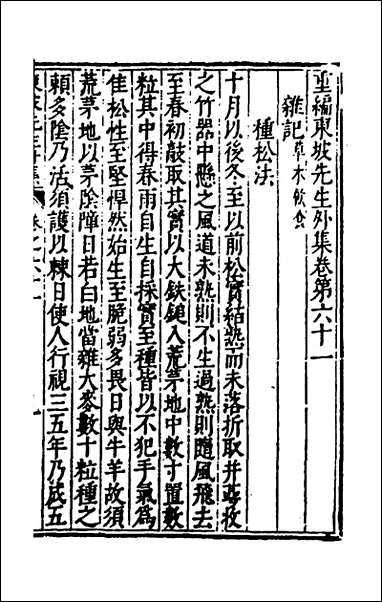 重編東坡先生外集卷第六十一
雜記草木飲食
種松法
十月以後冬至以前松實結熟而未落折取幷蕚收
之竹器中懸之風道未熟則不生過熟則隨風飛去
至春初敲取其實以大鉄鎚入荒茅地中數寸置數
粒其中得春雨自生自採實至種皆以不犯手氣爲
佳松性至堅悍然始生至脆弱多畏日與牛羊故須
荒茅地以茅陰障日若白地當雜大麥數十粒種之
賴多陰乃活須護以棘日使人行視三五年乃成五